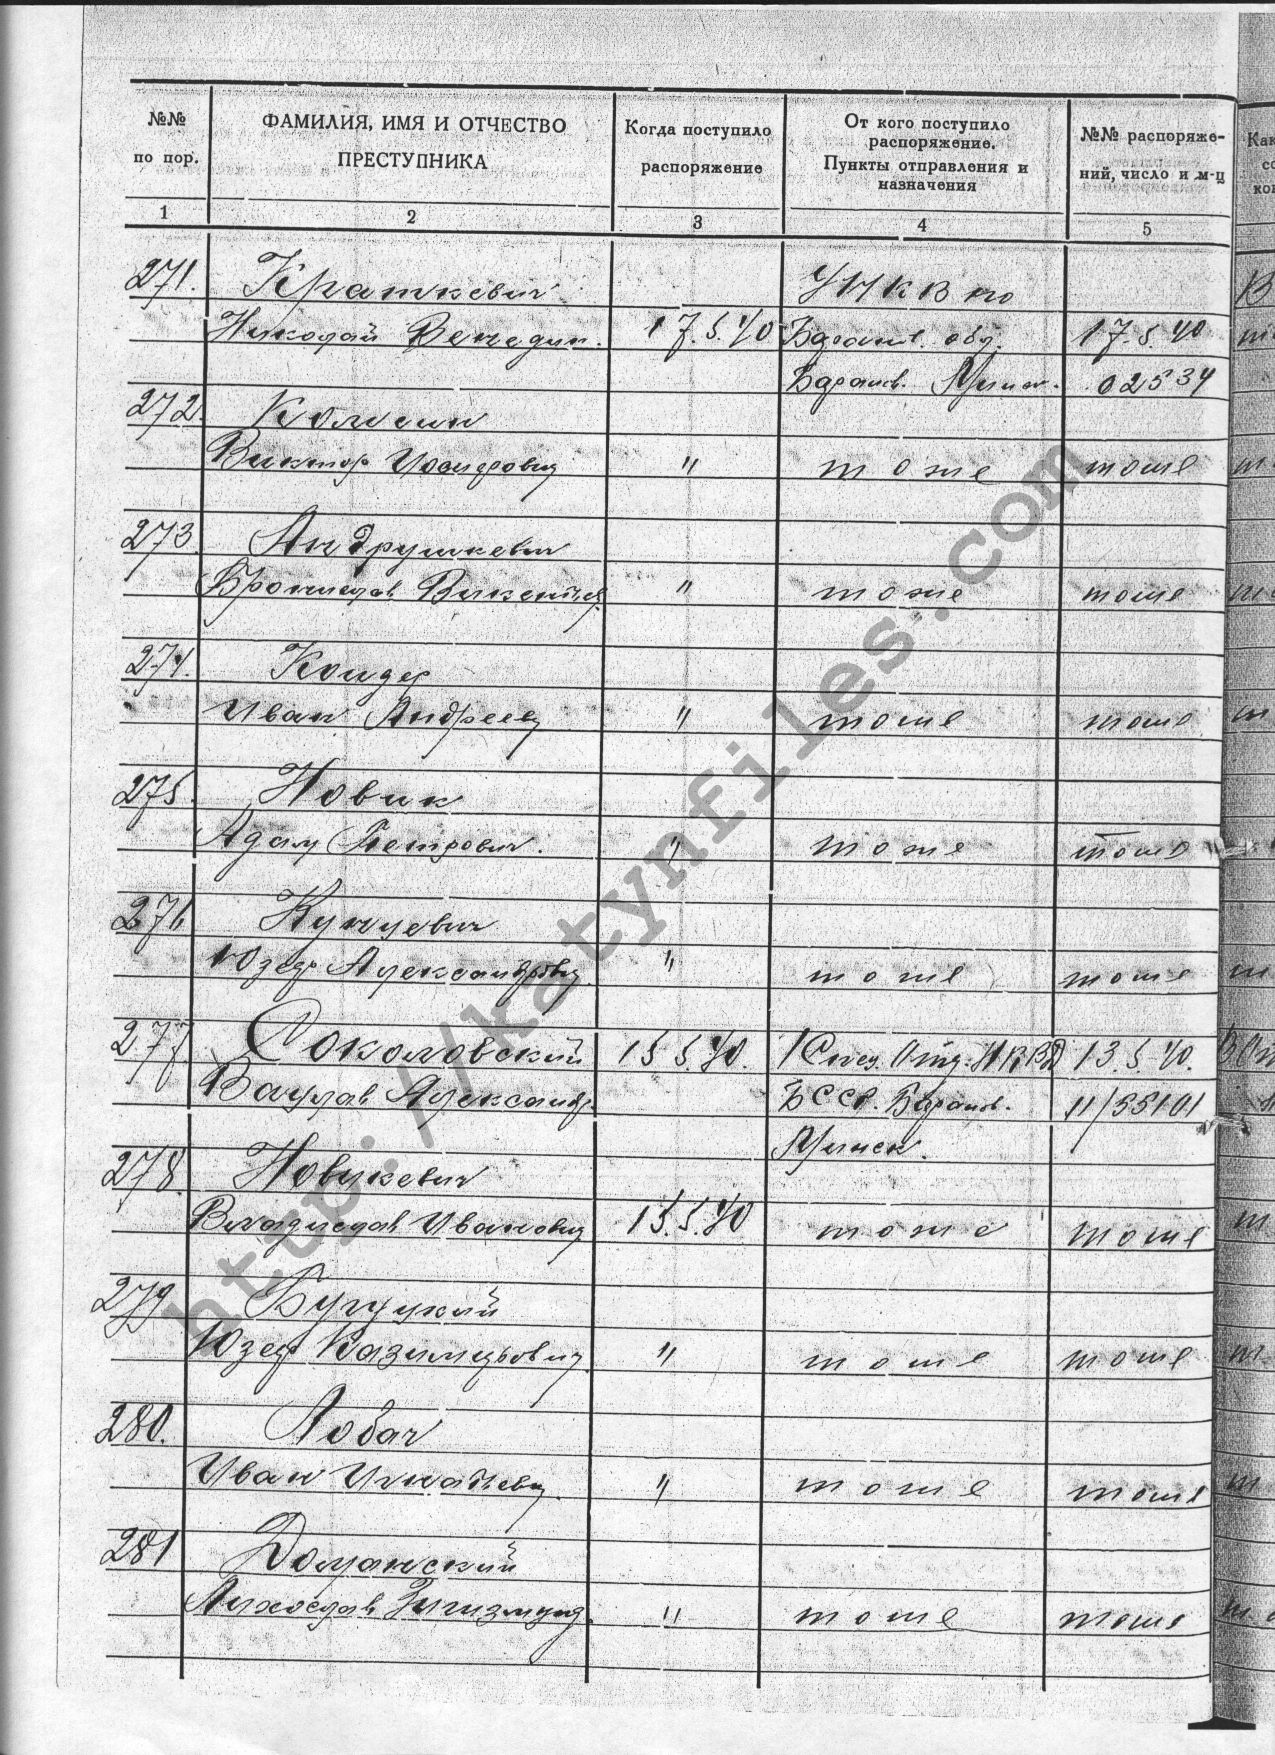 №№ по пор.
ФАМИЛИЯ, ИМЯ И ОТЧЕСТВО ПРЕСТУПНИКА
Когда поступило распоряжение
От кого поступило распоряжение. Пункты отправления и назначения
№№ распоряже-ний, число и м-ц
1 2 3 4 5
271. Краткевич УНКВ по
Николай Венедик. 17.5.40 Баранов. обл. 17.5.40
Баранов. Минск. 02534
272.
Виктор Иосифович " тоже тоже
273 Андрушкевич
Бронислав Викентьев. " тоже тоже
274. Кондер
Иван Андреев " тоже тоже
275 Новик
Адам Петрович. " тоже тоже
276 Кунцевич
Юзеф Александрович " тоже тоже
277 Соколовский 15.5.40. 1 Спец. Отд. НКВД 13.5.40.
Вацлав Александр. БССР. Баранов. 11/55101
Минск.
278. Новикевич
Владислав Иванович 15.5.40 тоже тоже
279
Юзеф Казимирович " тоже тоже
280. Лобач
Иван Игнатьевич " тоже тоже
281 Доманский
Зигизмунд. " тоже тоже
http://katynfiles.com